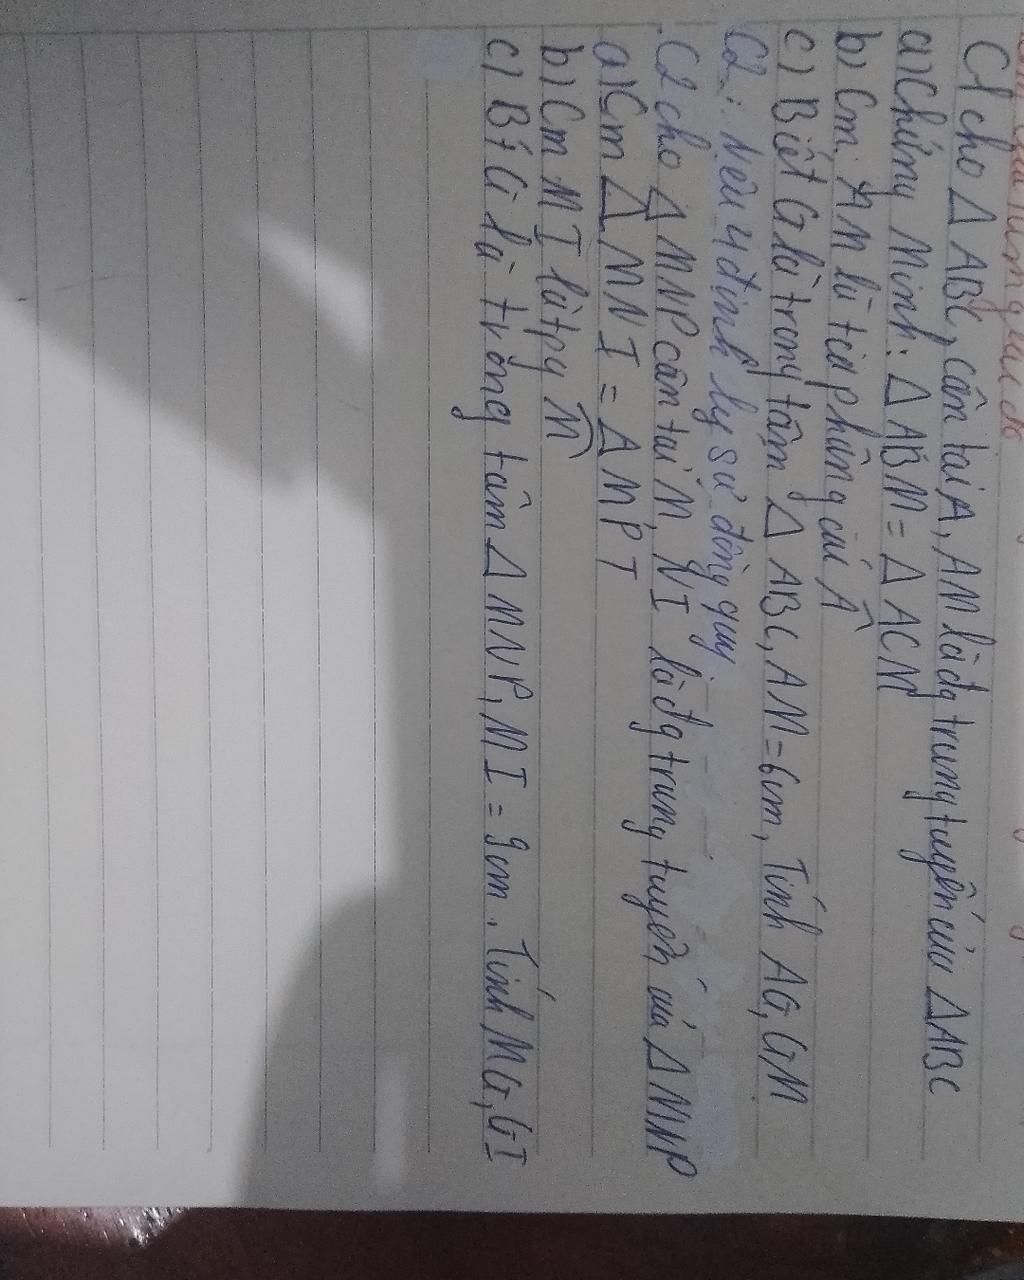 C1 cho Δ ABC, cân tại A, AM là đg trung tuyến của ΔABC
a) Chứng Minh: Δ ABM = Δ ACM
b) Cm: AM là tia phâng của Â
c) Biết G là trong tâm Δ ABC, AM = 6cm, Tính AG, GM
C2: Nêu 4 định lý sự đồng quy
C2 cho Δ MNP cân tại M, NI là đg trung tuyến của Δ MNP
a) Cm Δ MNI = Δ MPI
b) Cm MI là tpg M̂
c) Bt G là trọng tâm Δ MNP, MI = 9cm. Tính MG, GI